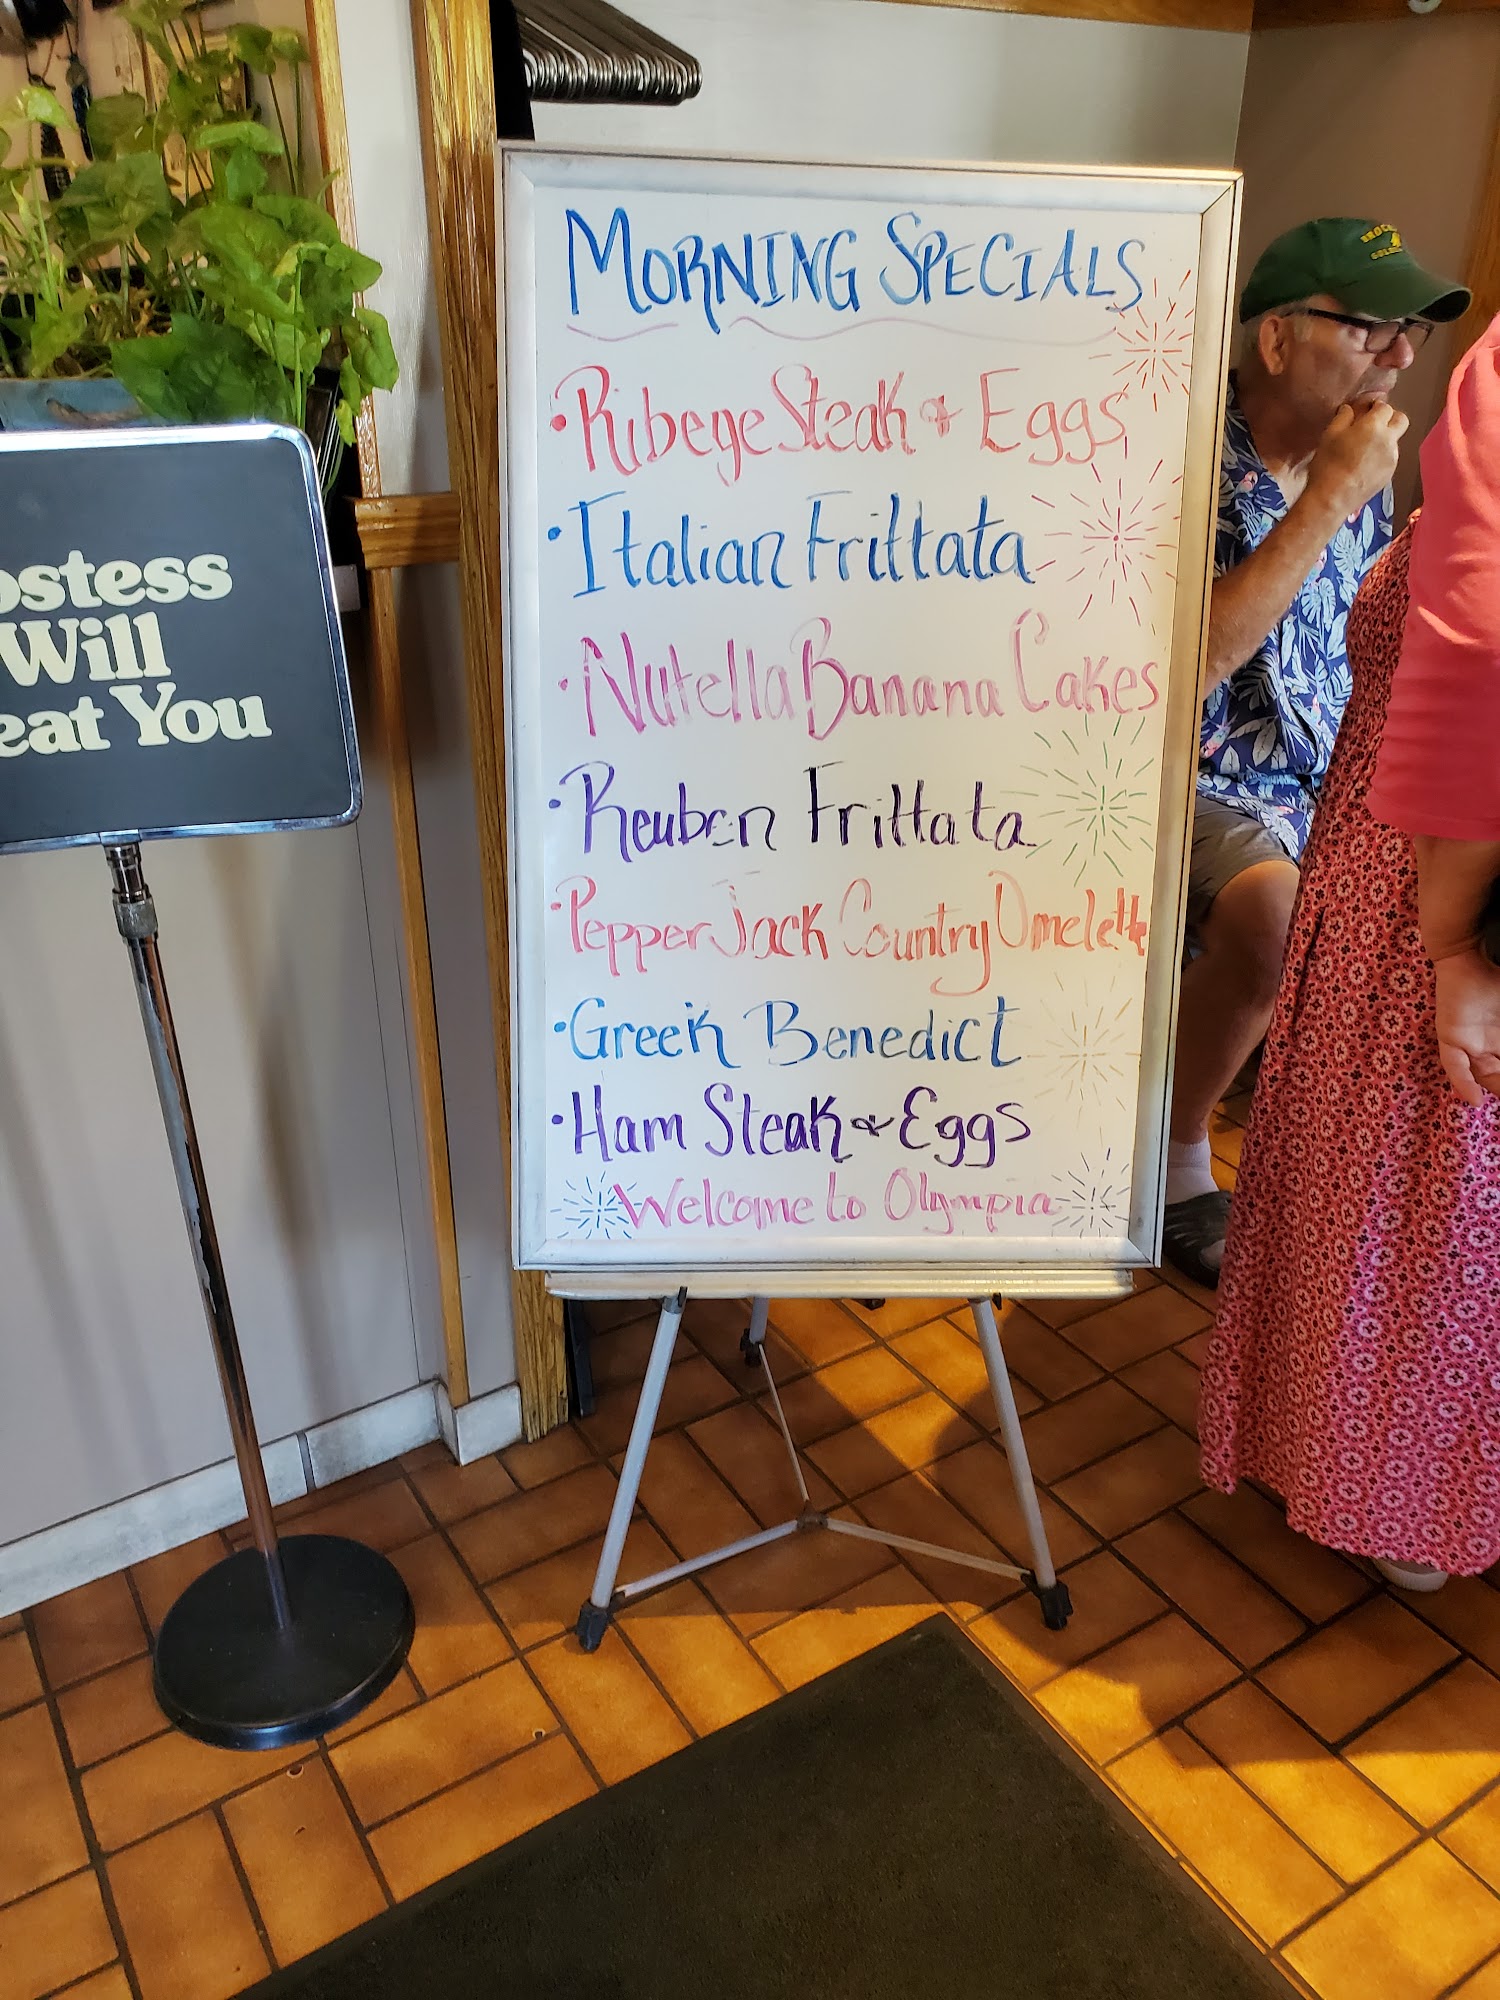 MORNING SPECIALS
• Ribeye Steak & Eggs
• Italian Frittata
• Nutella Banana Cakes
• Reuben Frittata
• Pepper Jack Country Omelette
• Greek Benedict
• Ham Steak & Eggs
Welcome to Olympia
ostess
Will
eat You